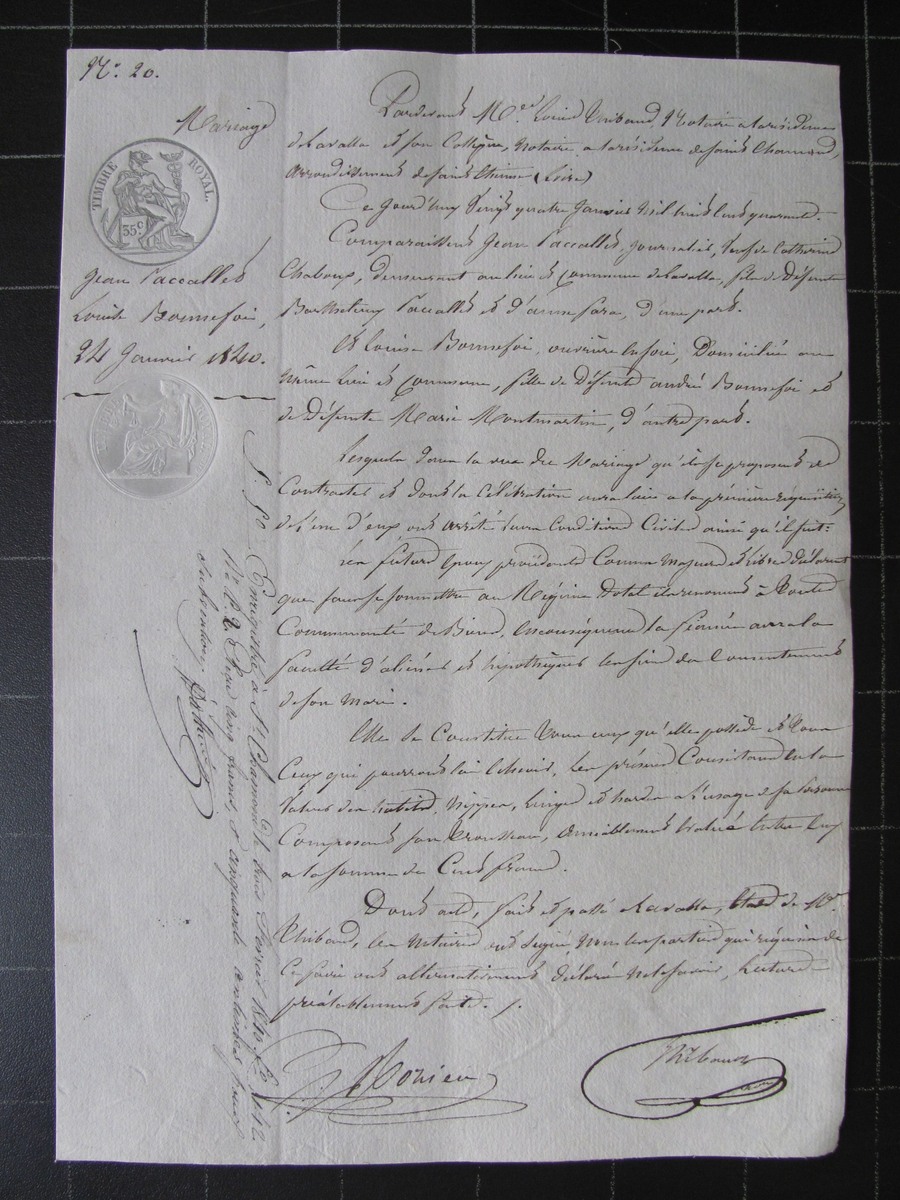 N.° 20.
Mariage
TIMBRE ROYAL.
35 c
Jean Paccallet
Louise Bonnefoi,
24 Janvier 1840.
Pardevant M.es Louis Thibaud, Notaire à la résidence
de Lavalla et son Collègue, Notaire à la résidence de Saint Chamond,
arrondissement de Saint Etienne (Loire)
Ce Jourd'huy Vingt quatre Janvier Mil huit Cent quarante.
Comparaissent Jean Paccallet, Journalier, Veuf de Catherine
Chaboux, demeurant au lieu et Commune de Lavalla, fils de Défunts
Barthelemy Paccallet et d'anne fara, d'une part.
Et Louise Bonnefoi, ouvrière en soie, Domiciliée au
même lieu et Commune, fille de Défunt andré Bonnefoi et
de Défunte Marie Montmartin, d'autre part.
Lesquels dans la vue du Mariage qu'ils se proposent de
Contracter et dont la Célébration aura lieu à la première réquisition
de l'un d'eux ont arrêté leurs Conditions Civiles ainsi qu'il suit:
Les futurs époux procédant Comme Majeurs et libres déclarent
que pour se soumettre au Régime Dotal ils renoncent à toute
Communauté de Biens, en conséquence la fiancée aura la
faculté d'aliéner et hypothéquer ses fonds du Consentement
de son Mari.
Elle se Constitue tous ceux qu'elle possède et tous
Ceux qui pourront lui échoir, les présens Consistant en la
Valeur des habits, Nippes, linges et hardes à l'usage de sa personne
Composant son trousseau, amiablement évalué entre eux
à la somme de Cent francs.
Dont acte, fait et passé à Lavalla, étude de M.e
Thibaud, les Notaires ont signé Non les parties qui requises de
Ce faire ont alternativement déclaré ne le savoir, lecture
préalablement faite. /.
Morieu
Thibaud
Enregistré à St Chamond le trois Février 1840, F.° 142
R.° C. 2. Reçu cinq francs et cinquante centimes pour
Subvention.